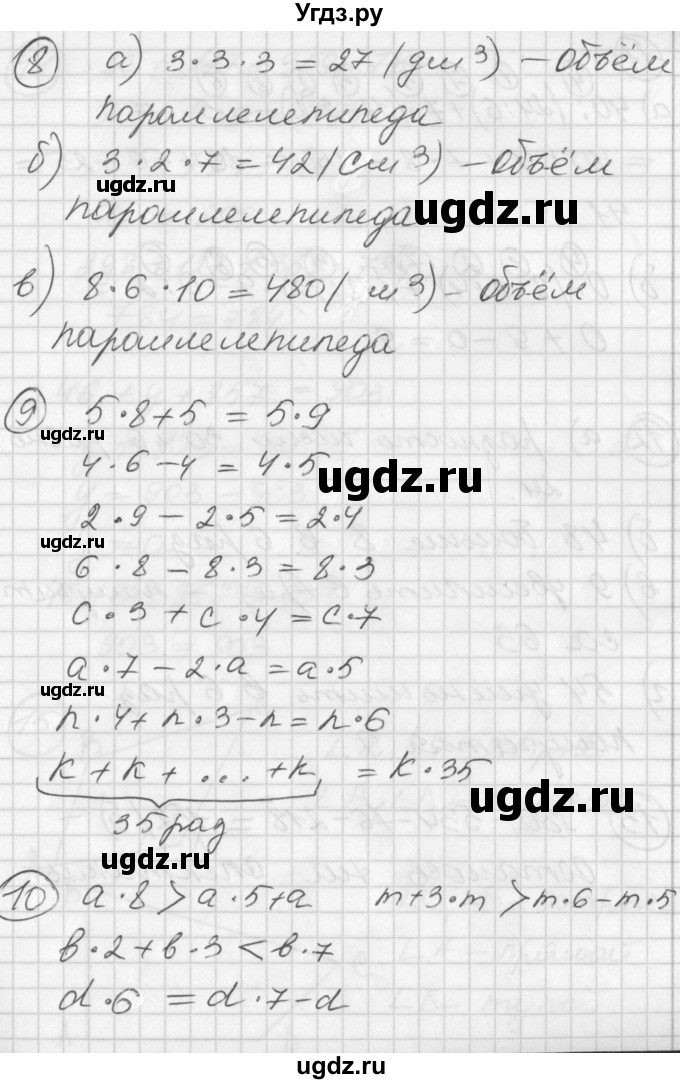 Угдз.ру
8 а) 3·3·3 = 27 (дм³) – объём
параллелепипеда
б) 3·2·7 = 42 (см³) – объём
ugdz.ru
параллелепипеда
ugdz.ru
в) 8·6·10 = 480 (м³) – объём
параллелепипеда
9 5·8+5 = 5·9
ugdz.ru
4·6–4 = 4·5
ugdz.ru
2·9 – 2·5 = 2·4
ugdz.ru
6·8 – 8·3 = 8·3
c·3 + c·4 = c·7
a·7 – 2·a = a·5
ugdz.ru
n·4+n·3–n = n·6
k + k + ... + k = k·35
ugdz.ru
35 раз
ugdz.ru
10 a·8 > a·5+a m+3·m > m·6–m·5
в·2+в·3 < в·7
d·6 = d·7–d
ugdz.ru